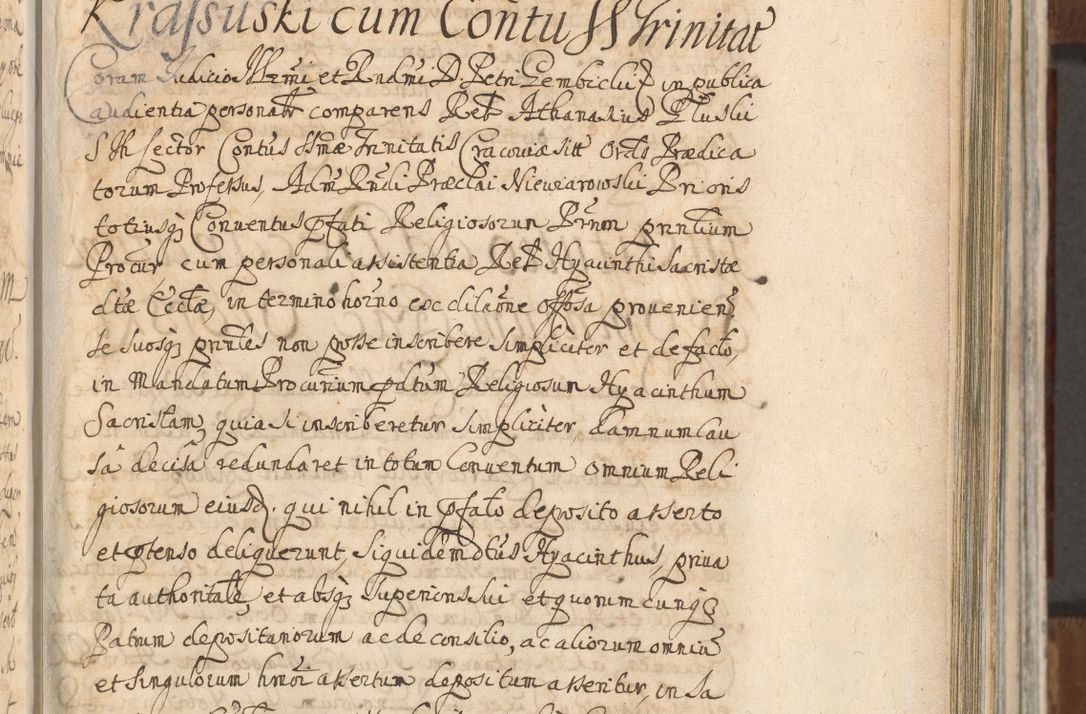 Krassuski cum Contu SS Trinitat
Coram Judicio Illrmi et Rndmi D. Petri Gembiclii in publica
audientia personalr comparens Red Athanasius Kluslii
S Th Lector Contus SSmæ Trinitatis Cracoviæ sitt Ordis Prædica
torum Professus, Adm Rndi Præclai Nieviarowslii Prioris
totiusq Conventus pfati Religiosorum Prum prntium
Procur cum personali assistentia Red Hyacinthi Sacristæ
dtæ Ecclæ, in termino horno ex dilaone offosa provenien,
se suosq prntes non posse inscribere simpliciter et de facto,
in Mandatum Procurium pdtum Religiosum Hyacinthum
Sacristam, quia si inscriberetur simpliciter, damnum cau
sa decisa redundaret in totum Conventum omnium Reli
giosorum eiusd. qui nihil in pfato deposito asserto
et ptenso deliquerunt, siquidem dtus Hyacinthus, priva
ta authoritate, et absq Superioris sui et quorumcunq
Patrum depositariorum ac de consilio, ac aliorum omniu
et singulorum hmoi assertum depositum asseritur, in sa